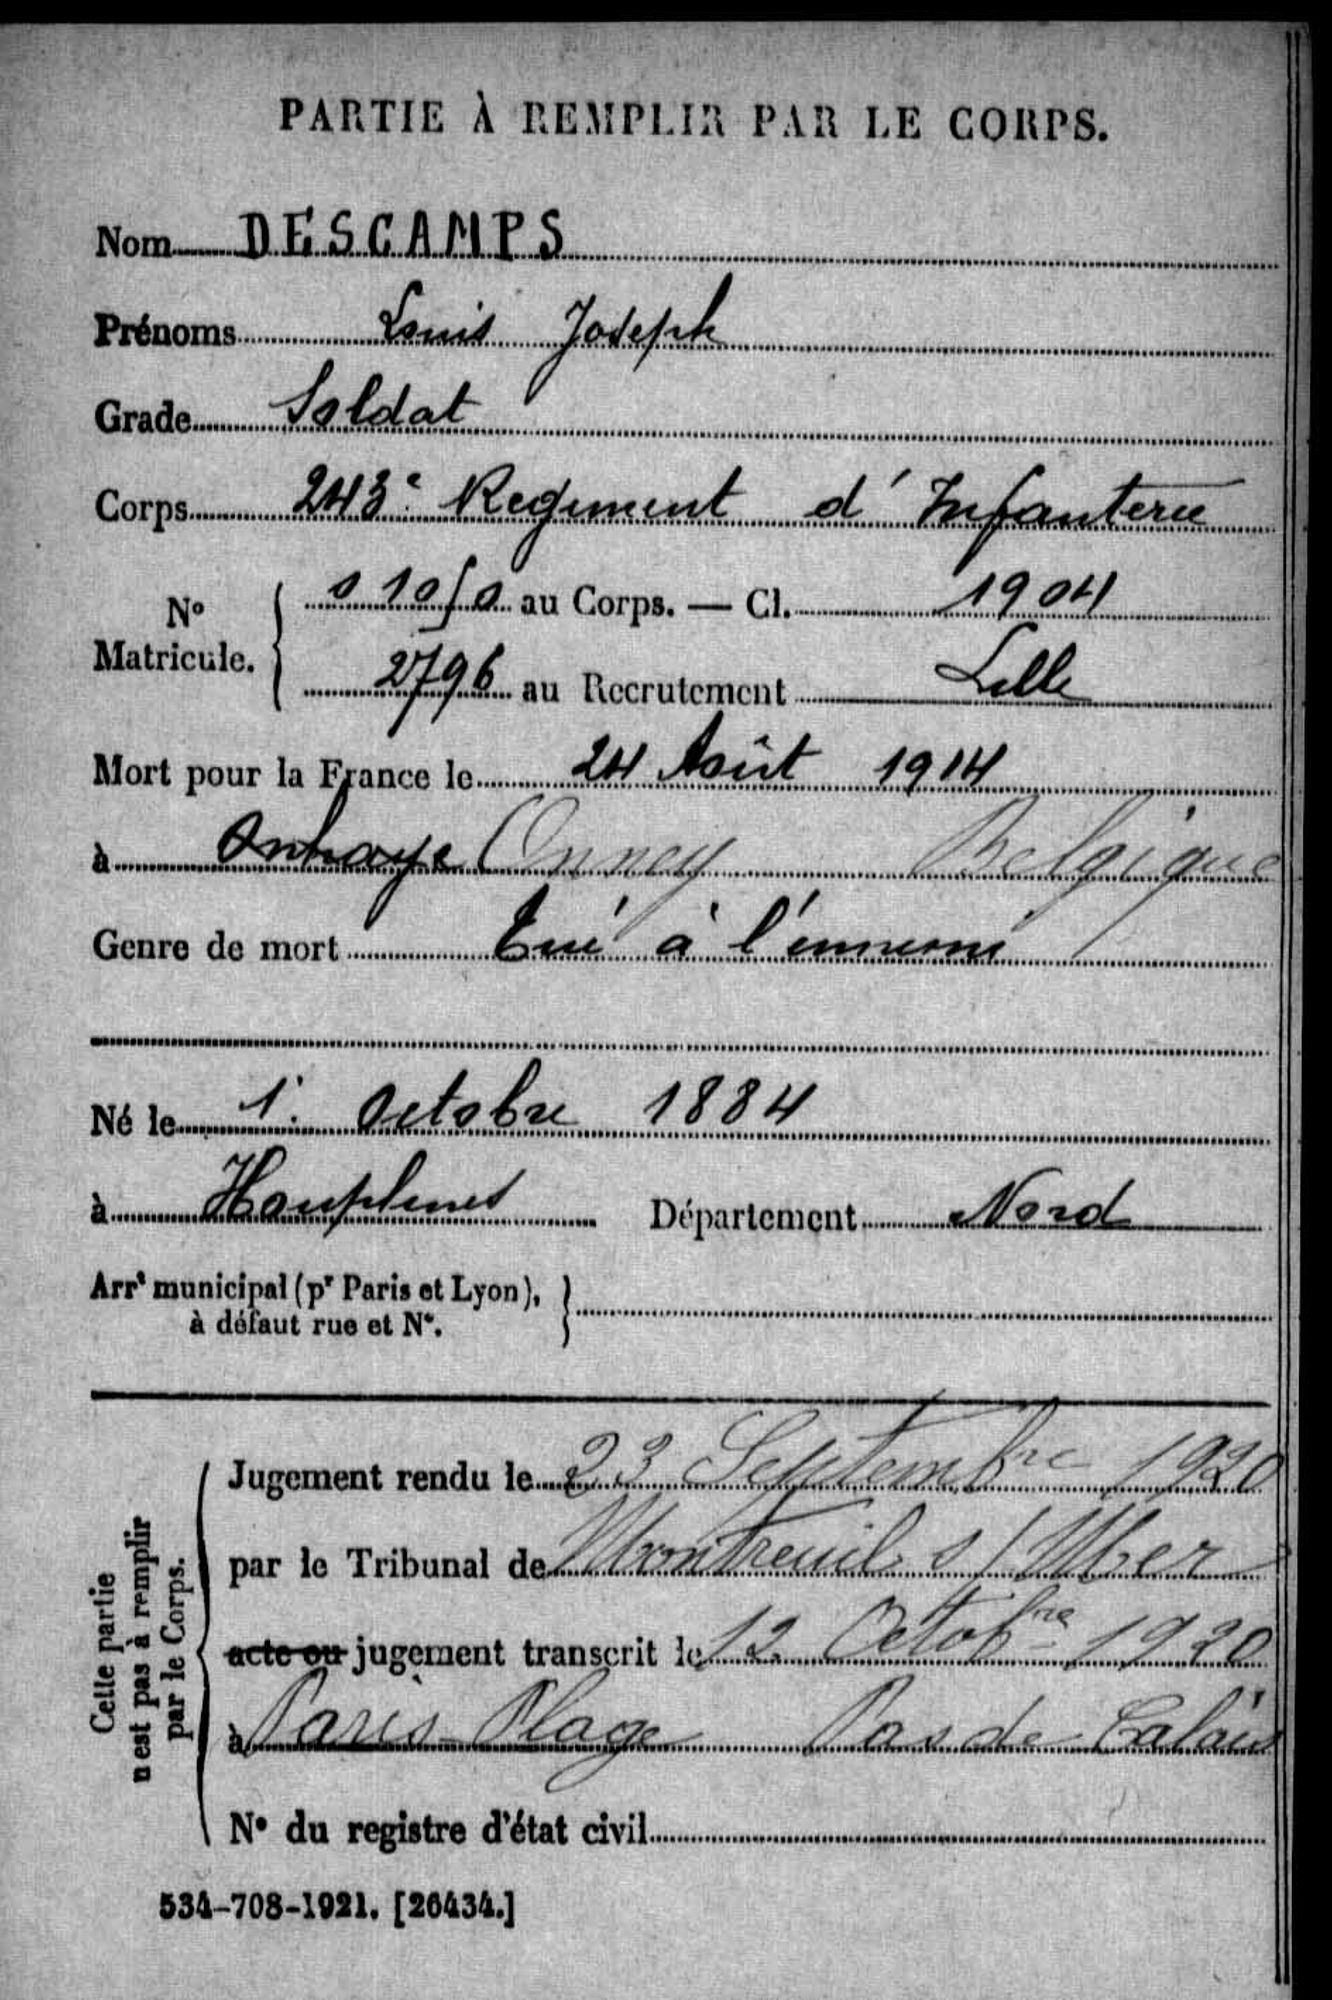 PARTIE À REMPLIR PAR LE CORPS.
Nom DESCAMPS
Prénoms Louis Joseph
Grade Soldat
Corps 243e Regiment d'Infanterie
No Matricule. { 01050 au Corps. — Cl. 1904
2796 au Recrutement Lille
Mort pour la France le 24 Août 1914
à Onhaye Onney Belgique
Genre de mort Tué à l'ennemi
Né le 1er Octobre 1884
à Houplines Département Nord
Arrt municipal (pr Paris et Lyon), }
à défaut rue et No.
Cette partie
n'est pas à remplir
par le Corps.
Jugement rendu le 23 Septembre 1920
par le Tribunal de Montreuil s/ Mer
acte ou jugement transcrit le 12 Octobre 1920
à Paris-Plage Pas de Calais
No du registre d'état civil
534-708-1921. [26434.]